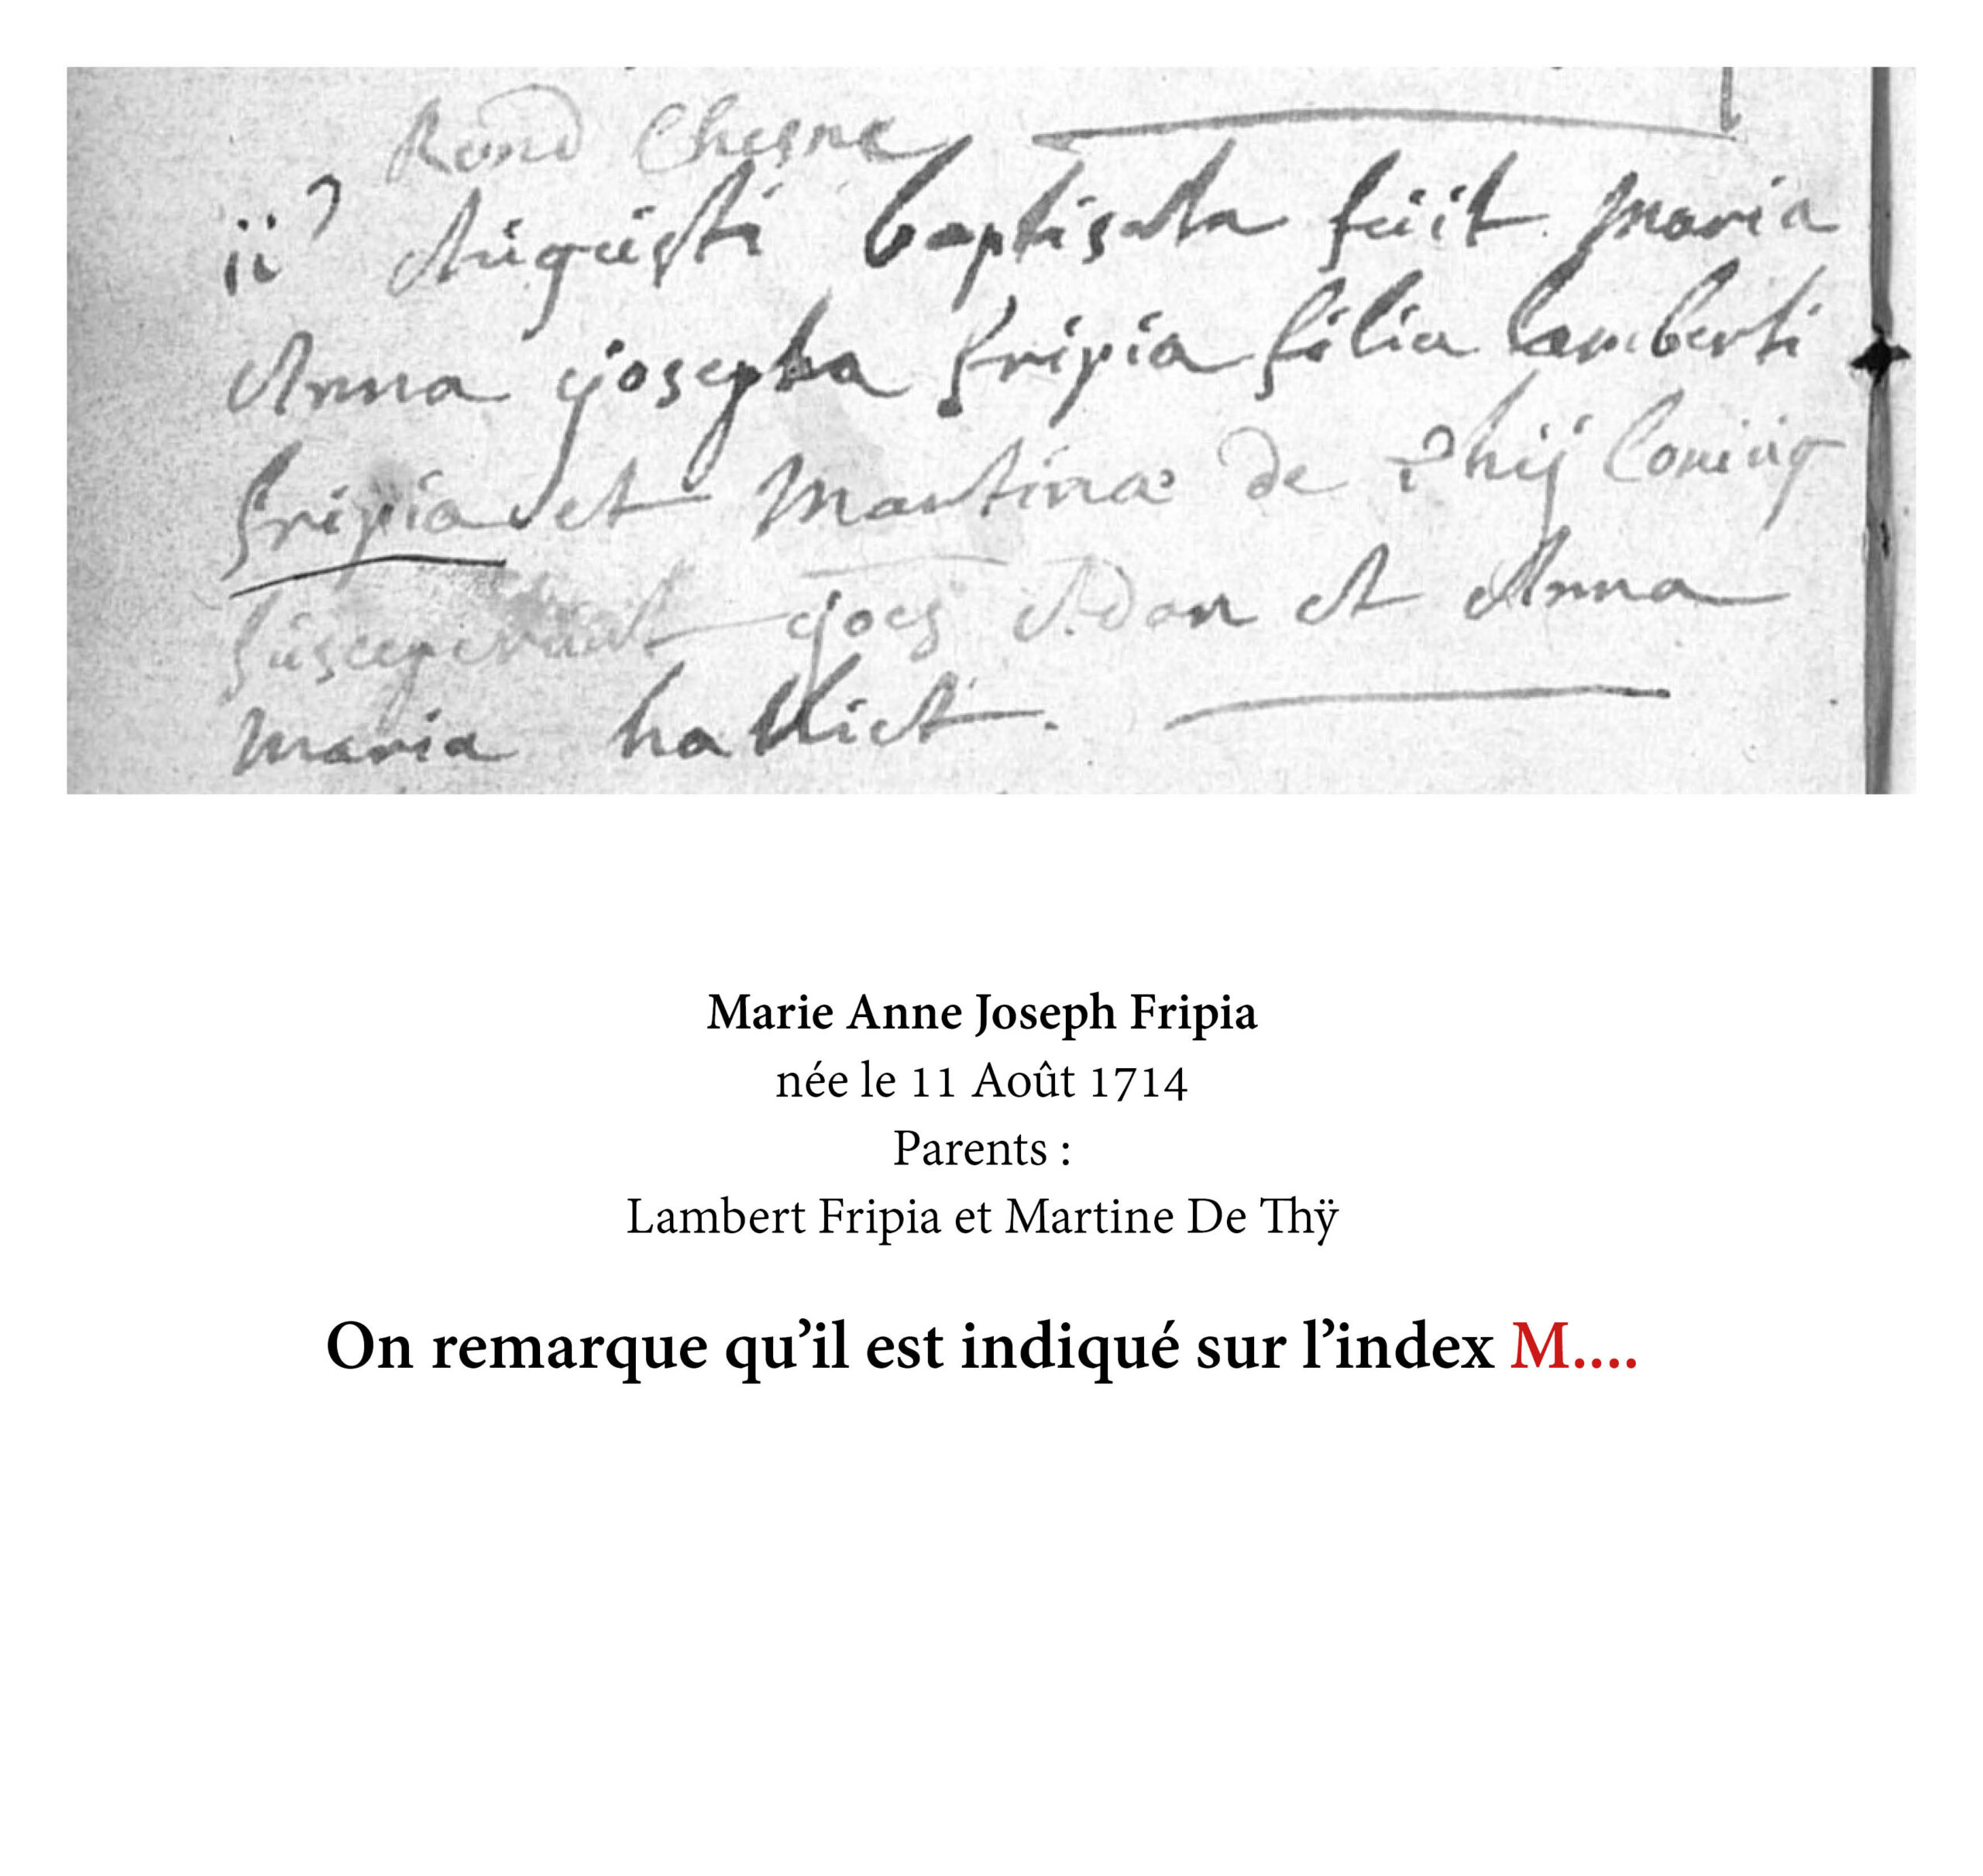 Rond Chesne
ii Augusti baptisata fuit Maria
Anna josepha fripia filia lamberti
fripia et Martinæ de Thij Coniug
susceperunt joes Adan et Anna
maria halliet.
Marie Anne Joseph Fripia
née le 11 Août 1714
Parents :
Lambert Fripia et Martine De Thÿ
On remarque qu’il est indiqué sur l’index M....